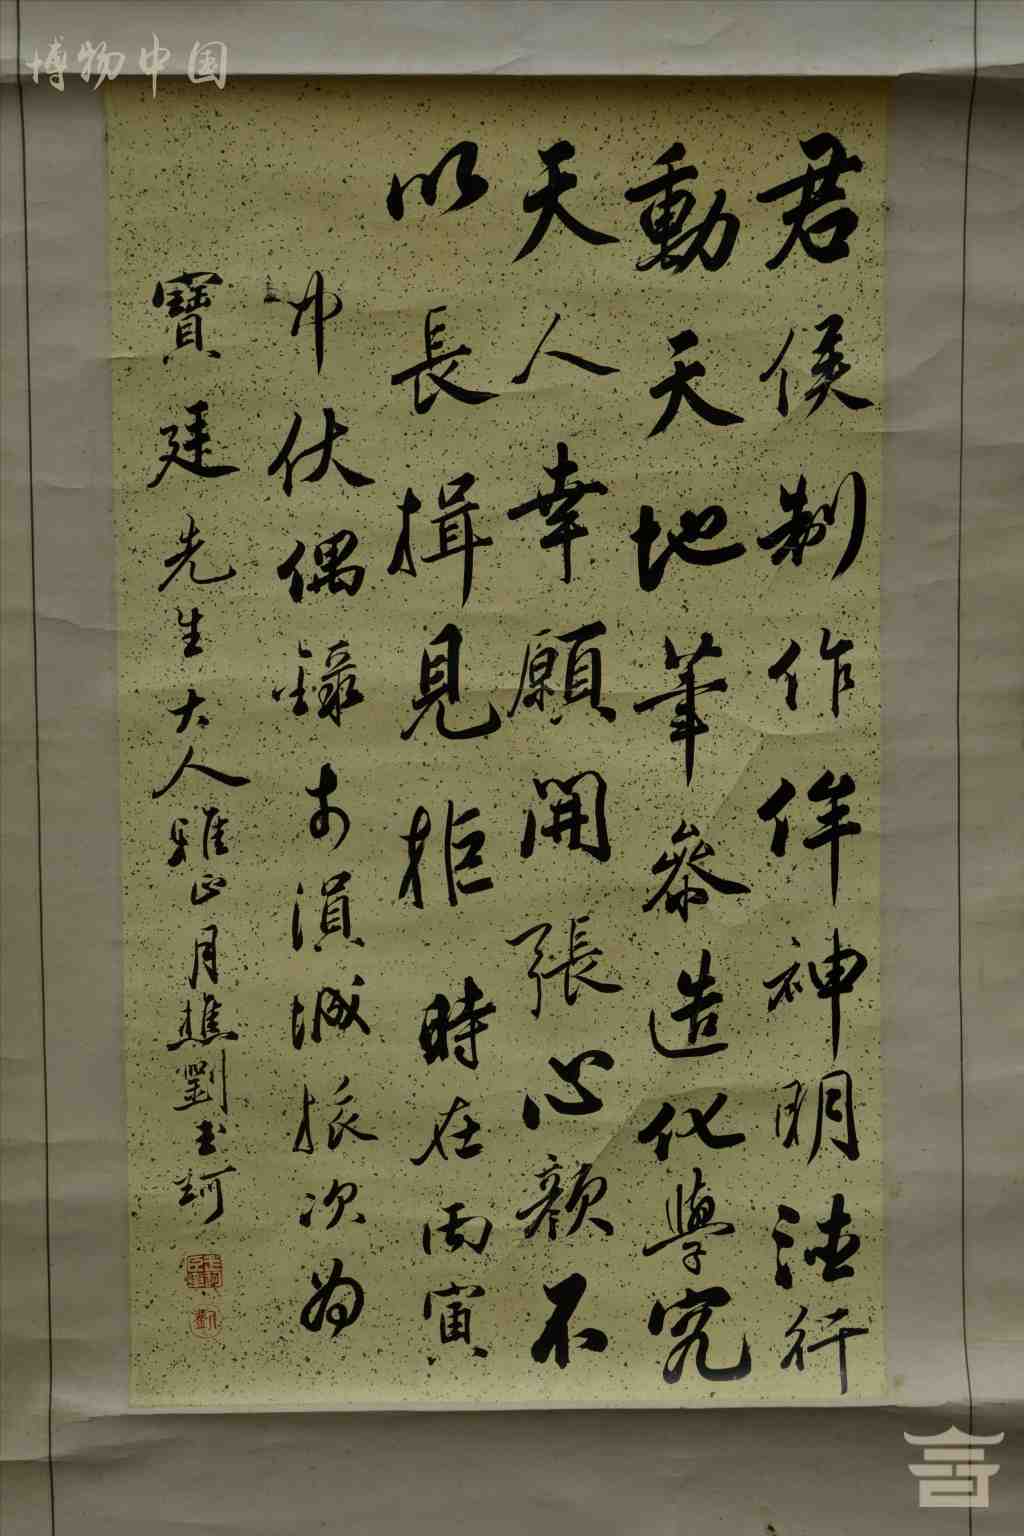 博物中国
君侯制作侔神明德行
動天地筆參造化學究
天人幸願開張心顏不
以長揖見拒時在丙寅
中伏偶錄於滇城旅次為
寶廷先生大人雅正月樵劉